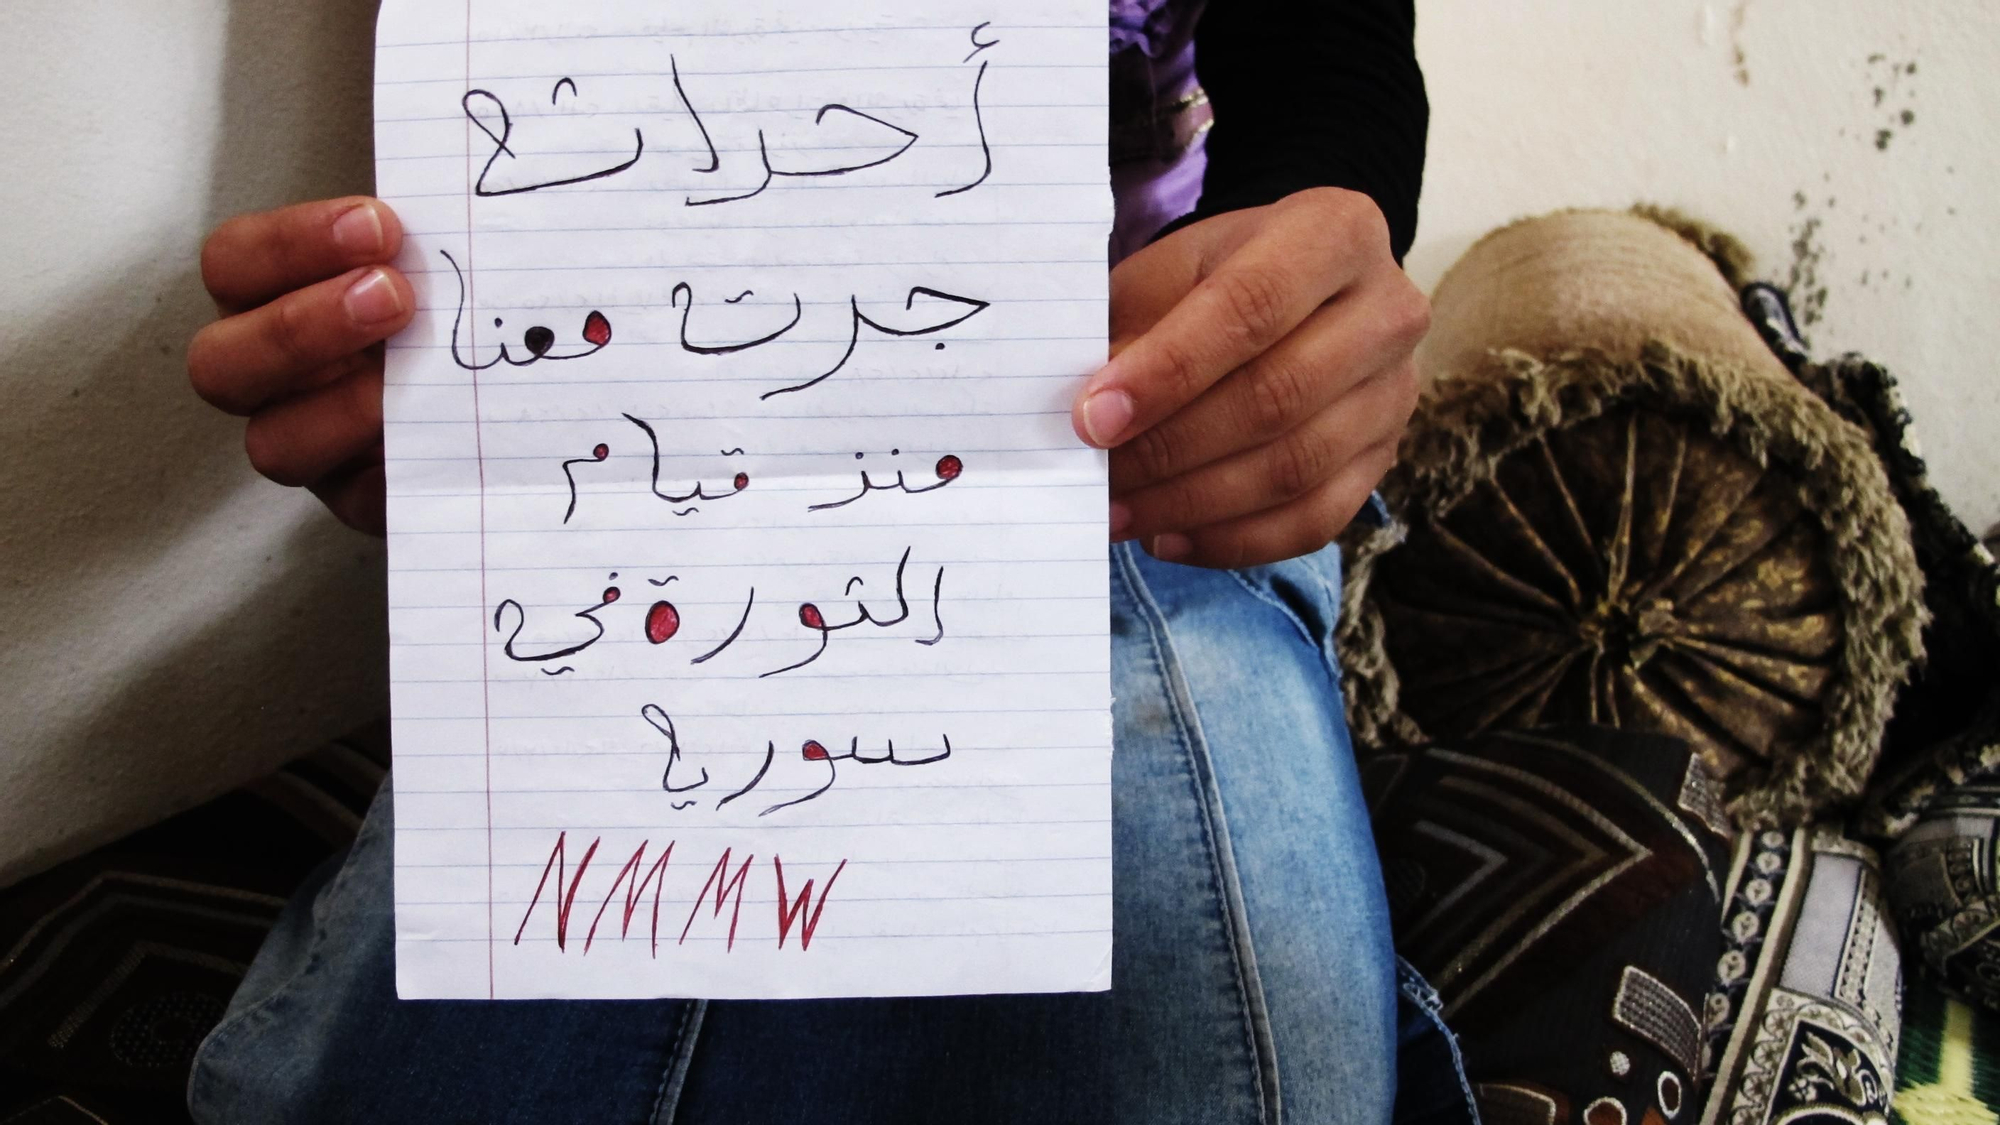 أحداث
جرت معنا
منذ قيام
الثورة في
سوريا
NMMW